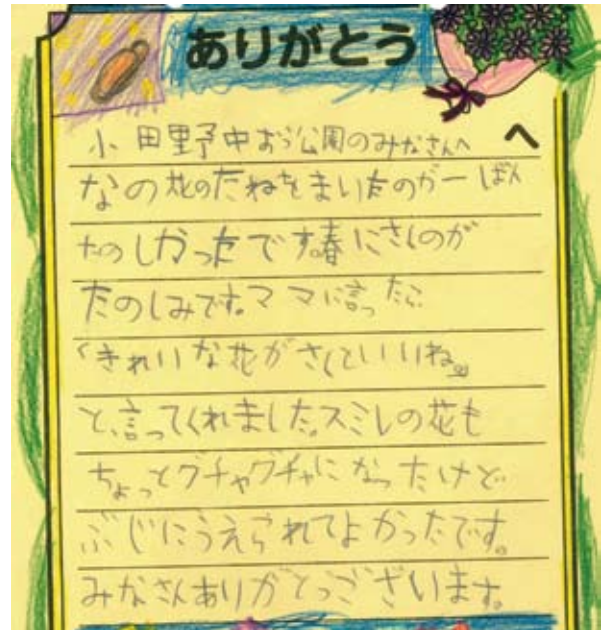 ありがとう
小田野中おう公園のみなさんへ へ
なの花のたねをまいたのが一ばん
たのしかったです。春にさくのが
たのしみです。ママに言ったら
「きれいな花がさくといいね。」
と、言ってくれました。スミレの花も
ちょっとグチャグチャになったけど
ぶじにうえられてよかったです。
みなさんありがとうございます。